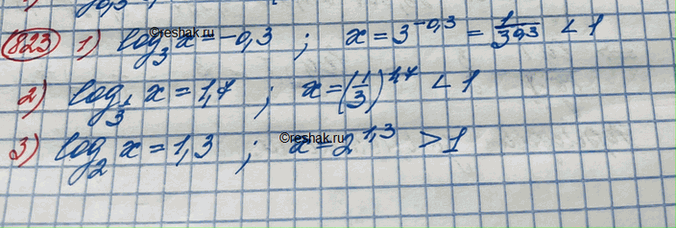 823 1) log₃ x = -0,3 ; x = 3^(-0,3) = 1/3^(0,3) < 1
2) log_(1/3) x = 1,7 ; x = (1/3)^(1,7) < 1
3) log₂ x = 1,3 ; x = 2^(1,3) > 1
©reshak.ru
©reshak.ru